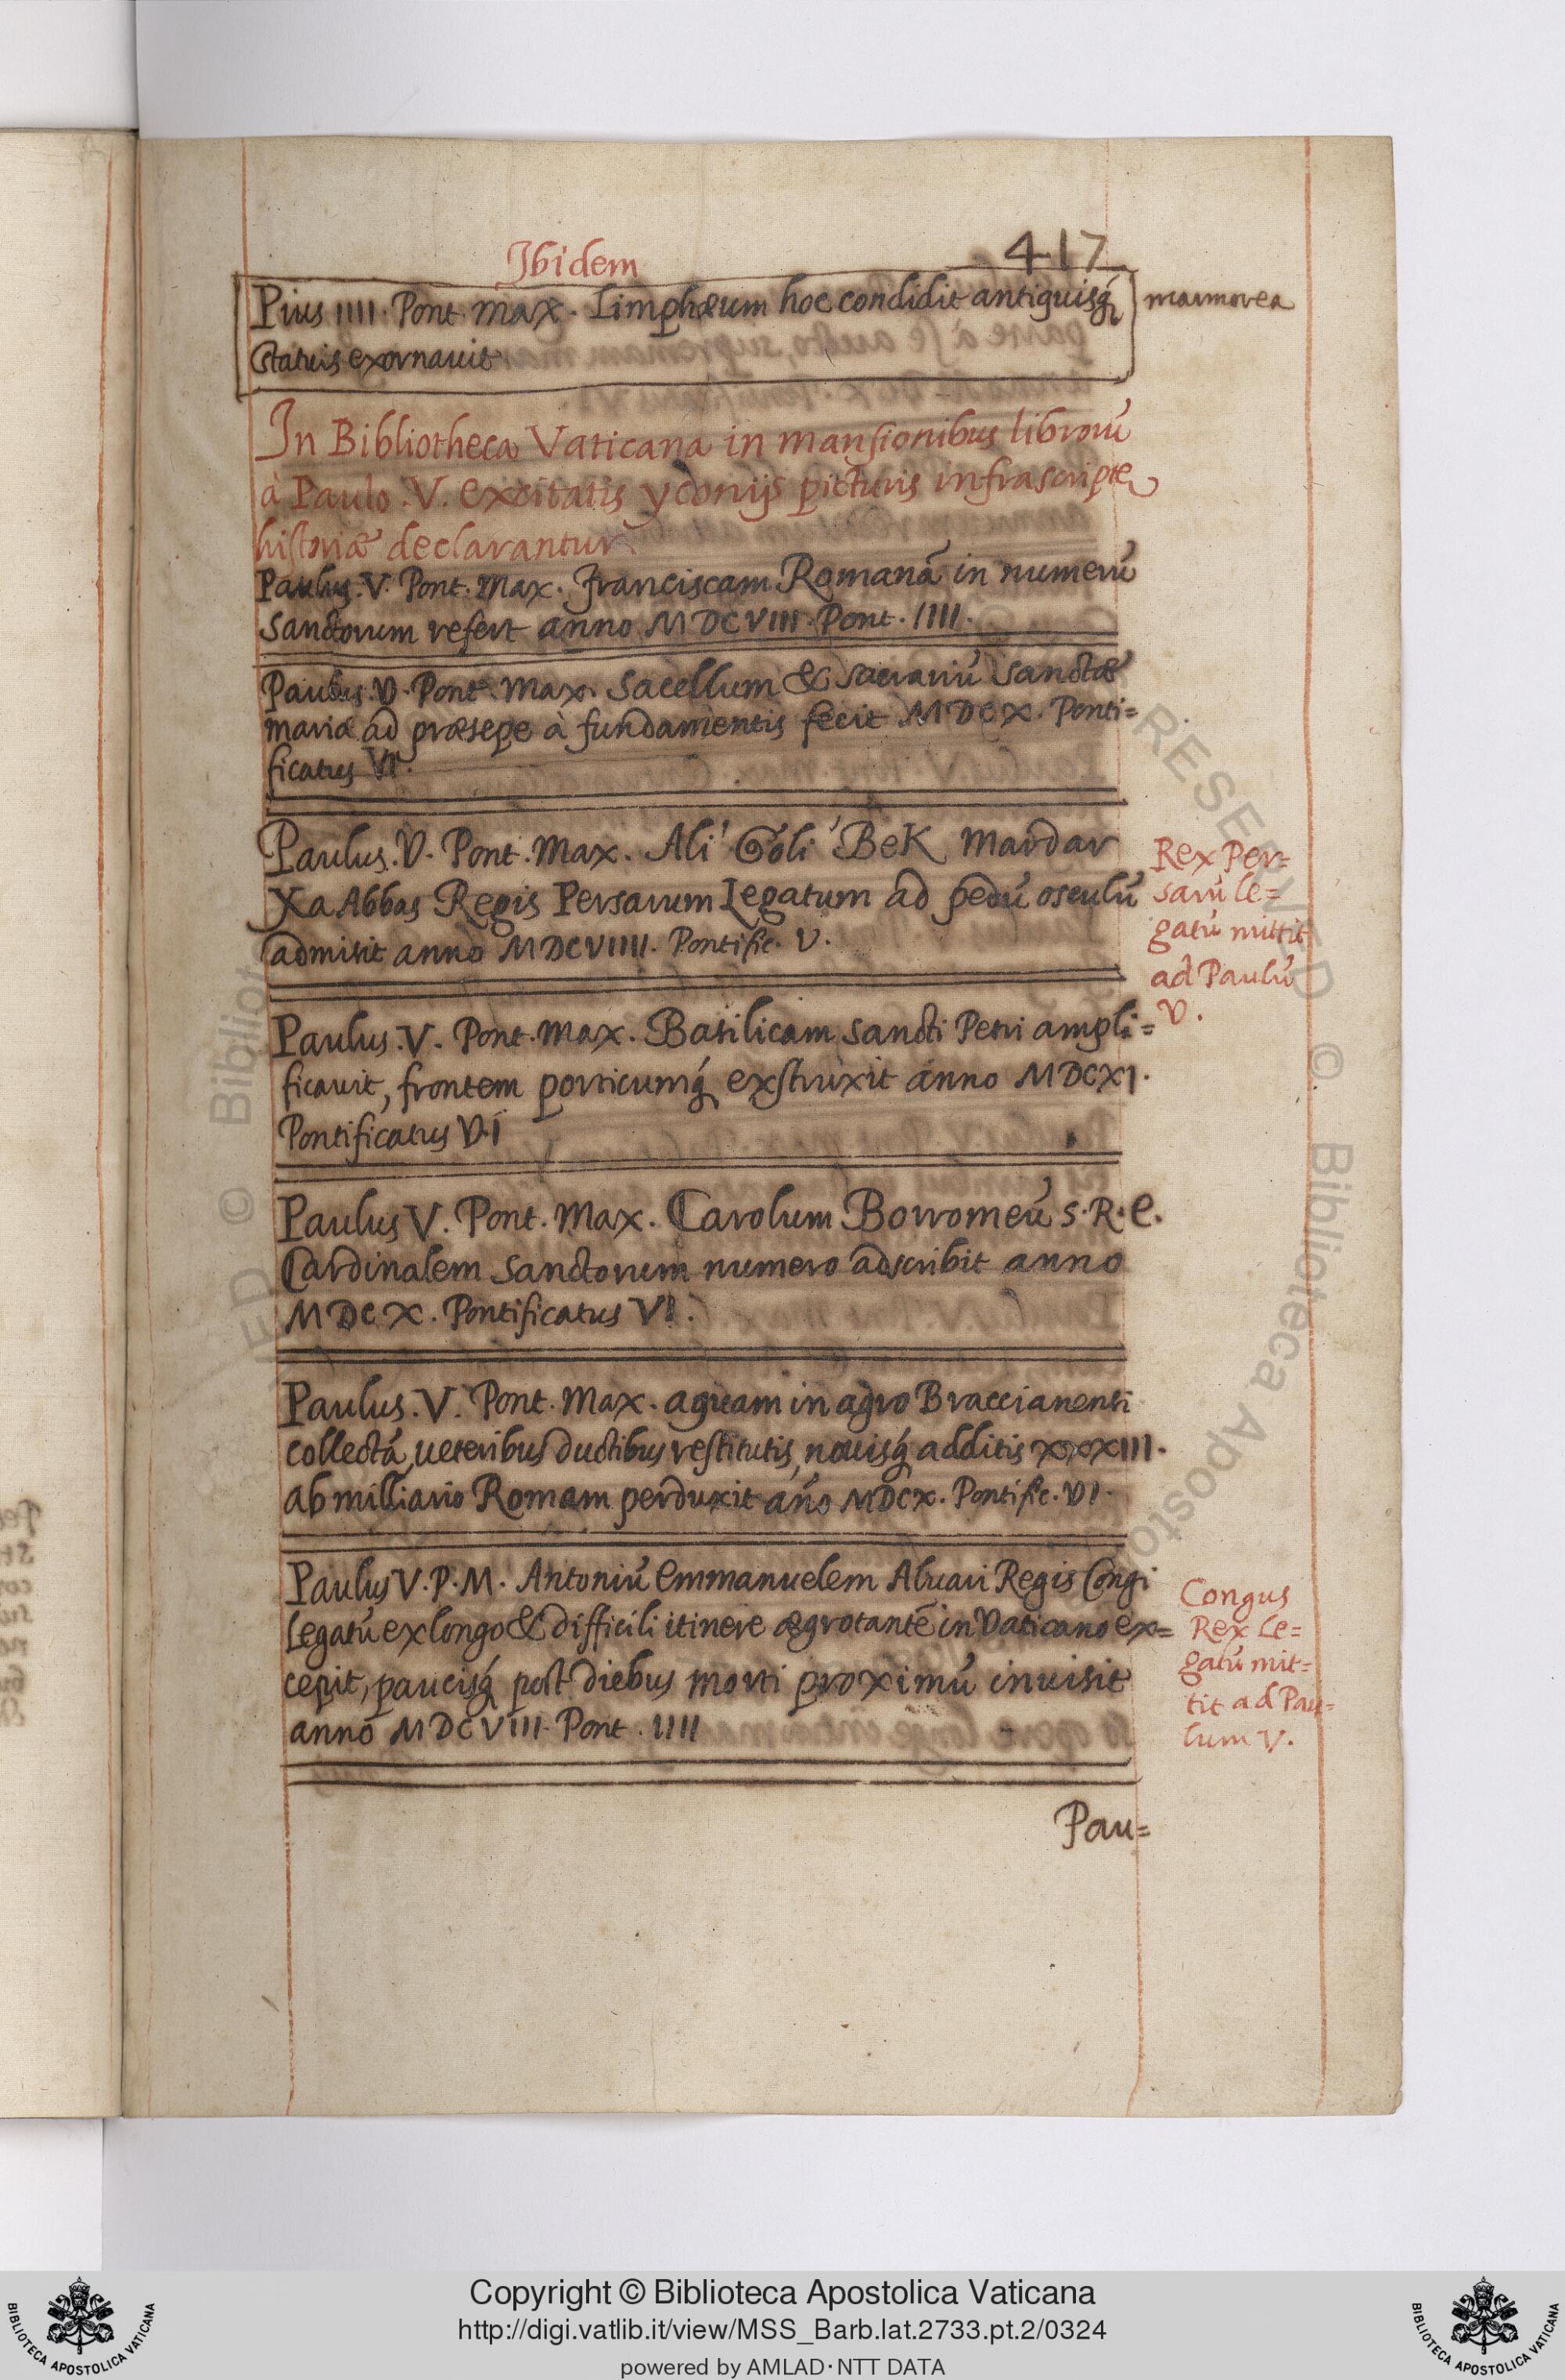 417
Ibidem
Pius IIII. Pont. Max. Limphæum hoc condidit antiquisq́
statuis exornauit
marmorea
In Bibliotheca Vaticana in mansionibus librorũ
à Paulo .V. excitatis ydonijs picturis infrascripte
historiæ declarantur.
Paulus .V. Pont. Max. Franciscam Romanã in numerũ
Sanctorum refert anno MDCVIII. Pont. IIII.
Paulus .V. Pont. Max. Sacellum & sacrariũ Sanctæ
Mariæ ad præsepe à fundamentis fecit MDCX. Ponti=
ficatus VI.
Paulus .V. Pont. Max. Ali' Goli' Bek Mardar
Xa Abbas Regis Persarum Legatum ad pedũ osculũ
admisit anno MDCVIIII. Pontific. V.
Rex Per=
sarũ le=
gatũ mittit
ad Paulũ
V.
Paulus .V. Pont. Max. Basilicam Sancti Petri ampli=
ficauit, frontem porticumq́ exstruxit anno MDCXI.
Pontificatus V.I
Paulus V. Pont. Max. Carolum Borromeũ S.R.E.
Cardinalem Sanctorum numero adscribit anno
MDCX. Pontificatus VI.
Paulus .V. Pont. Max. aquam in agro Braccianensi
collectã, ueteribus ductibus restitutis, nouisq́ additis XXXIII.
ab milliario Romam perduxit año MDCX. Pontific. VI.
Paulus V. P. M. Antoniũ Emmanuelem Aluari Regis Congi
Legatũ ex longo & difficili itinere ægrotantẽ in Vaticano ex=
cepit, paucisq́ post diebus morti proximũ inuisit
anno MDCVIII. Pont. IIII
Congus
Rex Le=
gatũ mit=
tit ad Pau=
lum V.
Pau=
Copyright © Biblioteca Apostolica Vaticana
http://digi.vatlib.it/view/MSS_Barb.lat.2733.pt.2/0324
powered by AMLAD·NTT DATA
BIBLIOTECA APOSTOLICA VATICANA
BIBLIOTECA APOSTOLICA VATICANA